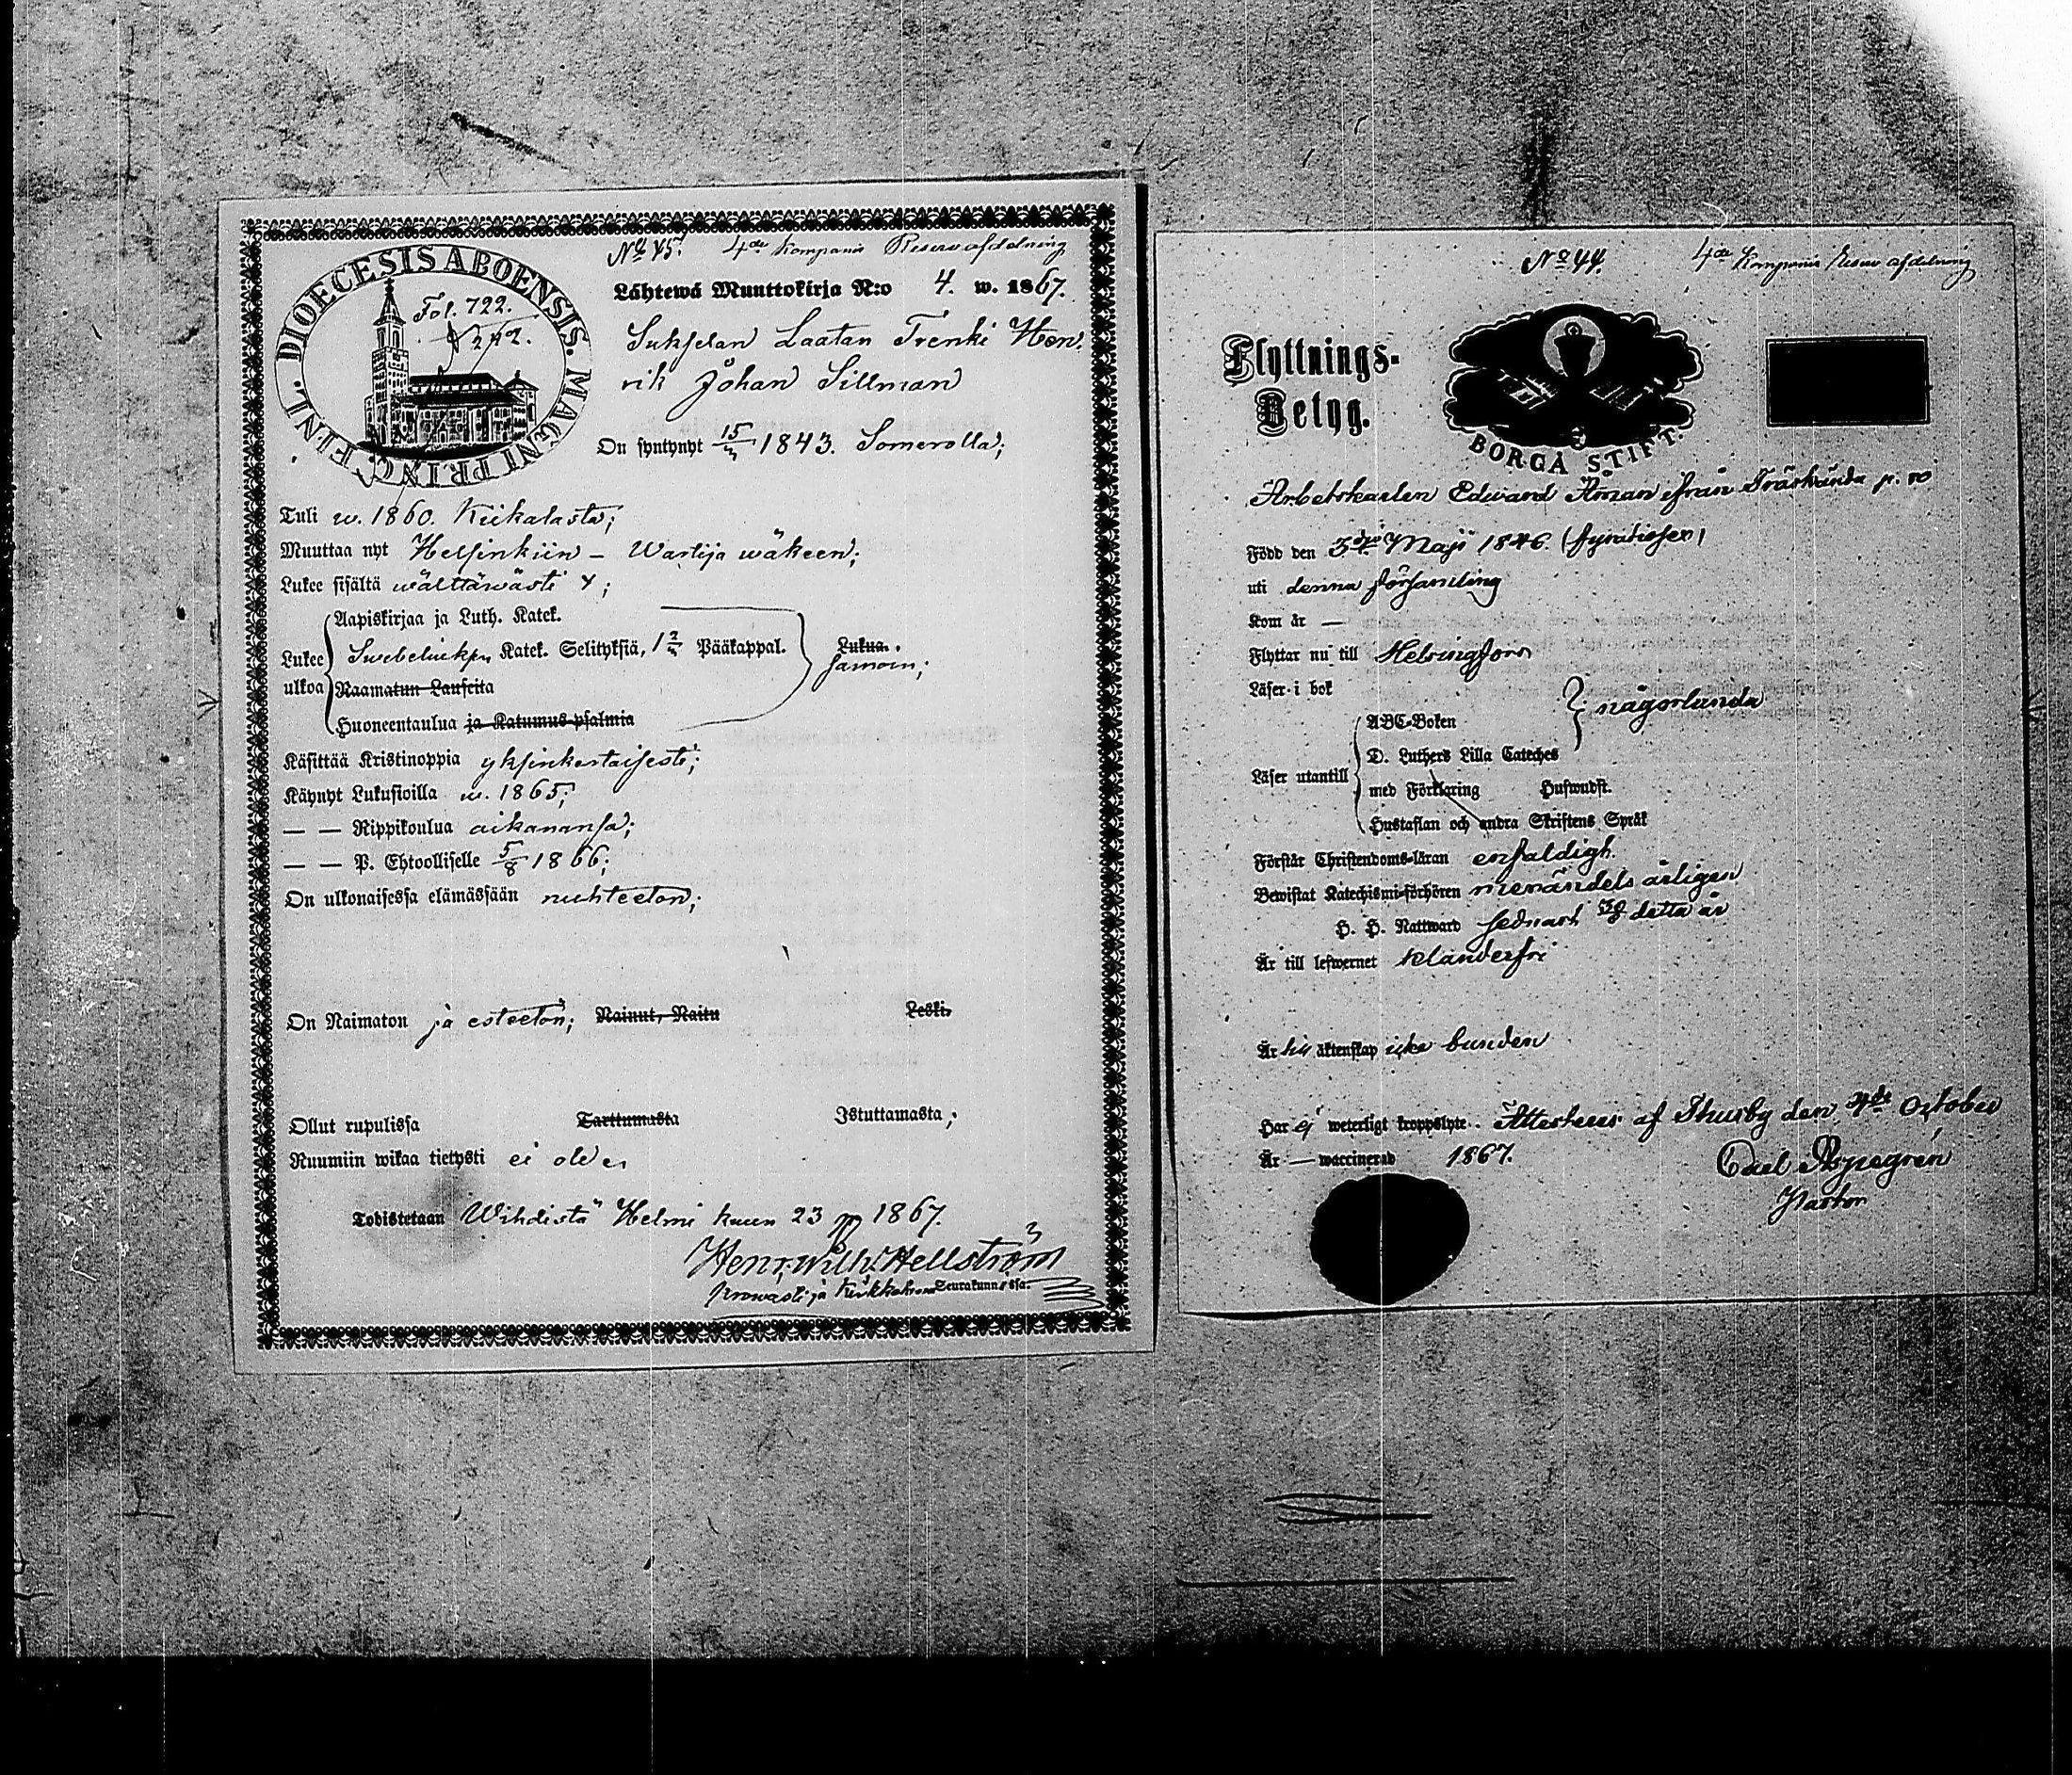 DIOECESIS ABOENSIS. MAGNI PRINC. FINL.
Fol. 722.
No 45. 4de Kompanie Reserv afdelning
Lähtewä Muuttokirja N:o 4. w. 1867.
Sukselan Laatan Trenki Hen-
rik Johan Sillman
On syntynyt 15/ 1843. Somerolla;
Tuli w. 1860. Kiikalasta;
Muuttaa nyt Helsinkiin – Wartija wäkeen;
Lukee sisältä wälttäwästi
Aapiskirjaa ja Luth. Katek.
Lukee ulkoa Katek. Selityksiä, Pääkappal. Lukua. samoin;
Raamatun Lauseita
Huoneentaulua ja Katumus-psalmia
Käsittää Kristinoppia yksinkertaisesti;
Käynyt Lukusioilla w. 1865;
— — Rippikoulua aikanansa;
— — P. Ehtoolliselle 5/8 1866;
On ulkonaisessa elämässään nuhteeton;
On Naimaton ja esteetön; Nainut, Naitu Leski,
Ollut rupulissa Tarttumasta Istuttamasta;
Ruumiin wikaa tietysti ei ole.
Todistetaan Wihdistä Helmi kuun 23 p 1867.
Henr. Wilh. Hellström
Prowasti ja Kirkkoherra Seurakunnassa.
No 44. 4de Kompanie Reserv afdelning
Flyttnings-
Betyg.
BORGÅ STIFT.
Arbetskarlen Edward Åman ifrån Träskända
Född den 3dje Maji 1846. (fyratiosex)
uti denna församling
Kom år —
Flyttar nu till Helsingfors
Läser i bok
någorlunda
ABC-Boken
D. Luthers Lilla Cateches
Läser utantill
med Förklaring Huswudst.
Hustaflan och andra Skriftens Språk
Förstår Christendoms-läran enfaldigt.
Bewistat Katechismi-förhören merändels årligen
H. H. Nattward sednast detta år
Är till lefwernet klanderfri
Är till äktenskap icke bunden
Har ej weterligt kroppslyte. Attesteras af Thusby den October
Är — waccinerad 1867.
Carl
Pastor